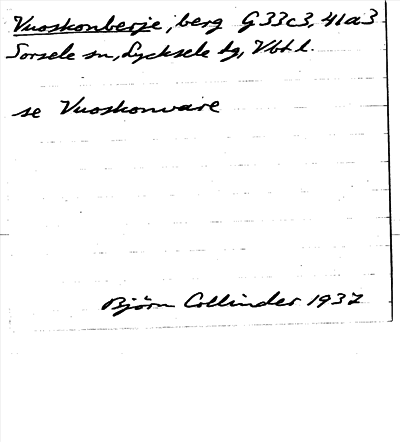 Vuoskonberje, berg G 33c3, 41a3
Sorsele sn, Lycksele tg, Vbtl.
se Vuoskonvare
Björn Collinder 1937